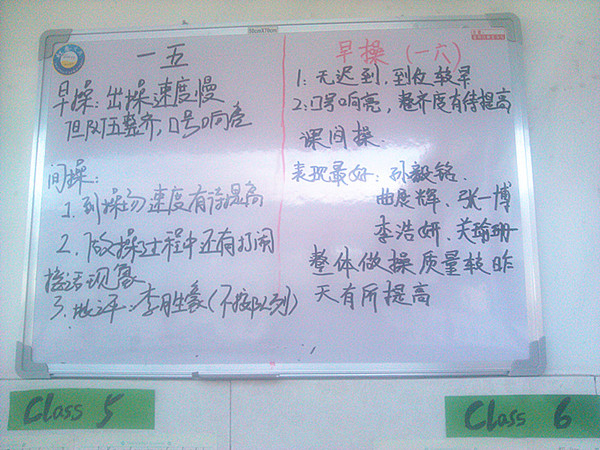 一五
早操：出操速度慢
但队伍整齐，口号响亮
间操：
1. 到操场速度有待提高
2. 做操过程中还有打闹
说话现象
3. 批评：李胜豪（不按队列）
早操（一六）
1：无迟到，到位较早
2：口号响亮，整齐度有待提高
课间操
表现最好：孙毅铭、
曲展辉、张一博
李浩妍、关瑜珊
整体做操质量较昨
天有所提高
Class 5
Class 6